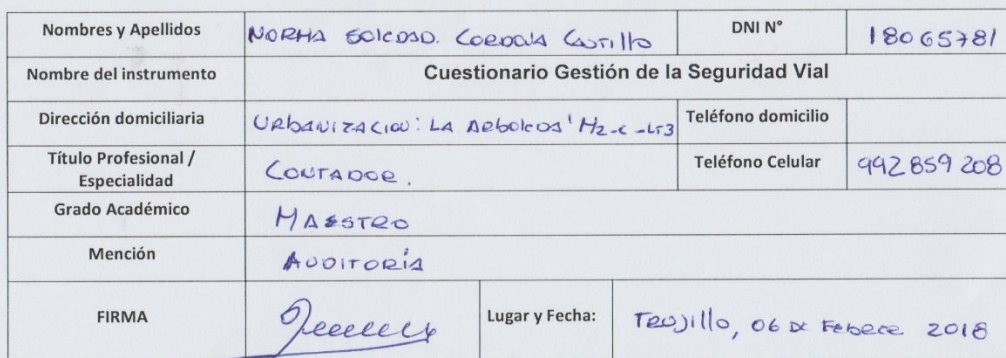 Nombres y Apellidos NORMA SOLEDAD. CORDOVA CASTILLO DNI N° 18065781
Nombre del instrumento Cuestionario Gestión de la Seguridad Vial
Dirección domiciliaria URBANIZACION: LA ARBOLEDA' Mz-C-LT3 Teléfono domicilio
Título Profesional / Especialidad CONTADOR. Teléfono Celular 992859208
Grado Académico MAESTRO
Mención AUDITORÍA
FIRMA Lugar y Fecha: TRUJILLO, 06 DE 2018